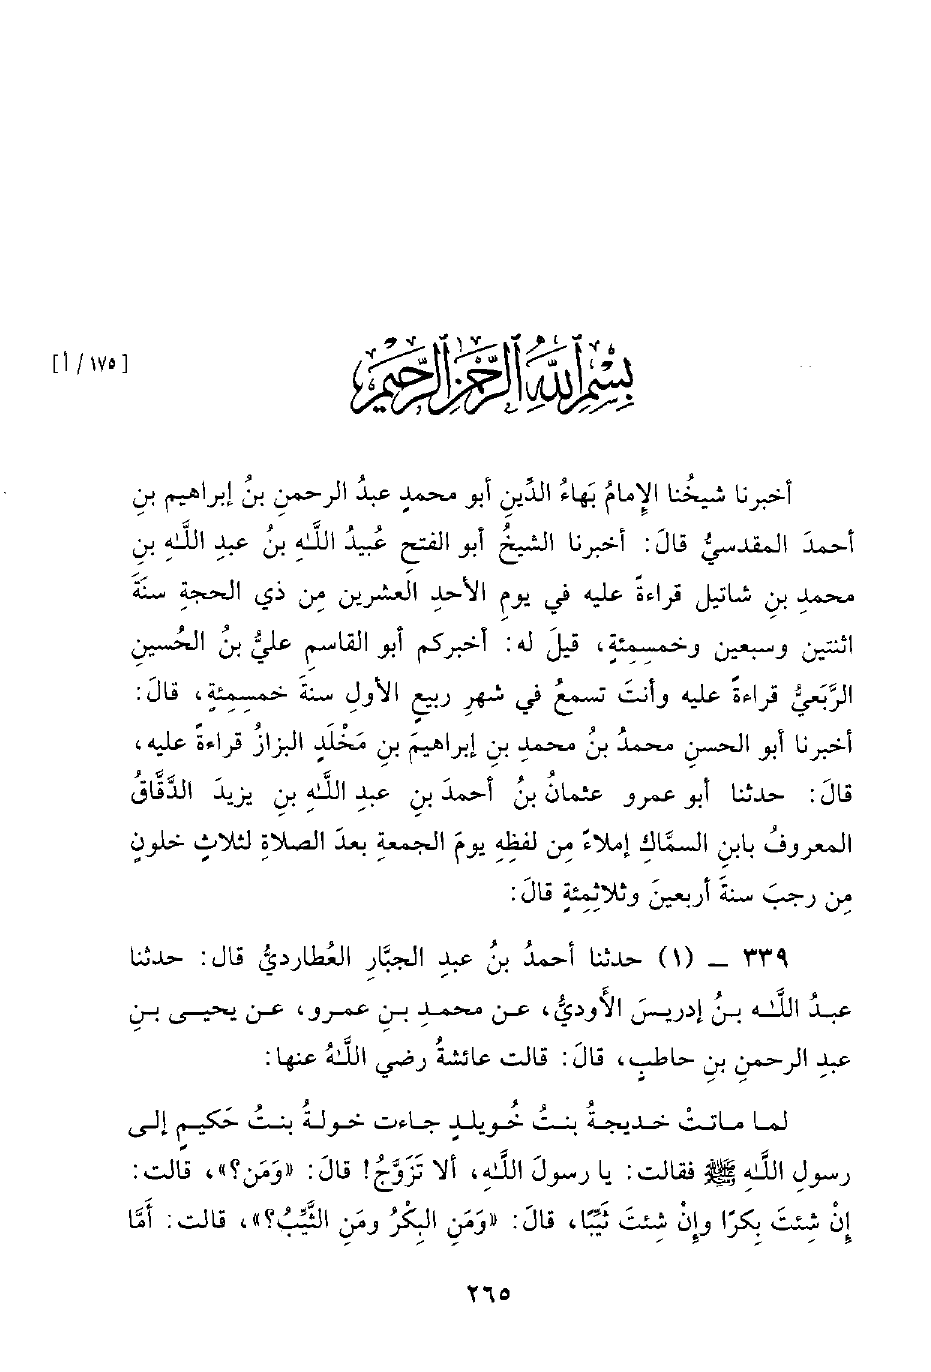 [١٧٥/أ]
بِسْمِ اللَّهِ الرَّحْمَنِ الرَّحِيمِ
أخبرنا شيخُنا الإمامُ بَهاءُ الدِّينِ أبو محمدٍ عبدُ الرحمنِ بنُ إبراهيم بنِ
أحمدَ المقدسيُّ قالَ: أخبرنا الشيخُ أبو الفتحِ عُبيدُ اللَّهِ بنُ عبدِ اللَّهِ بنِ
محمدِ بنِ شاتيل قراءةً عليه في يومِ الأحدِ العشرين مِن ذي الحجةِ سنَةَ
اثنتين وسبعين وخمسِمِئةٍ، قيلَ له: أخبركم أبو القاسمِ عليُّ بنُ الحُسينِ
الرَّبَعيُّ قراءةً عليه وأنتَ تسمعُ في شهرِ ربيعٍ الأولِ سنةَ خمسِمِئةٍ، قالَ:
أخبرنا أبو الحسنِ محمدُ بنُ محمدِ بنِ إبراهيمَ بنِ مَخْلَدٍ البزازُ قراءةً عليه،
قالَ: حدثنا أبو عمرو عثمانُ بنُ أحمدَ بنِ عبدِ اللَّهِ بنِ يزيدَ الدَّقَّاقُ
المعروفُ بابنِ السمَّاكِ إملاءً مِن لفظِهِ يومَ الجمعةِ بعدَ الصلاةِ لثلاثٍ خلونَ
مِن رجبَ سنةَ أربعينَ وثلاثِمِئةٍ قالَ:
٣٣٩ ـ (١) حدثنا أحمدُ بنُ عبدِ الجبَّارِ العُطارديُّ قال: حدثنا
عبدُ اللَّهِ بنُ إدريسَ الأَوديُّ، عن محمدِ بنِ عمرو، عن يحيى بنِ
عبدِ الرحمنِ بنِ حاطبٍ، قالَ: قالت عائشةُ رضي اللَّهُ عنها:
لما ماتتْ خديجةُ بنتُ خُويلدٍ جاءت خولةُ بنتُ حَكيمٍ إلى
رسولِ اللَّهِ ﷺ فقالت: يا رسولَ اللَّهِ، ألا تَزَوَّجُ! قالَ: «وَمَن؟»، قالت:
إنْ شِئتَ بِكرًا وإنْ شِئتَ ثَيِّبًا، قالَ: «وَمَنِ البِكْرُ ومَنِ الثَّيِّبُ؟»، قالت: أَمَّا
٢٦٥